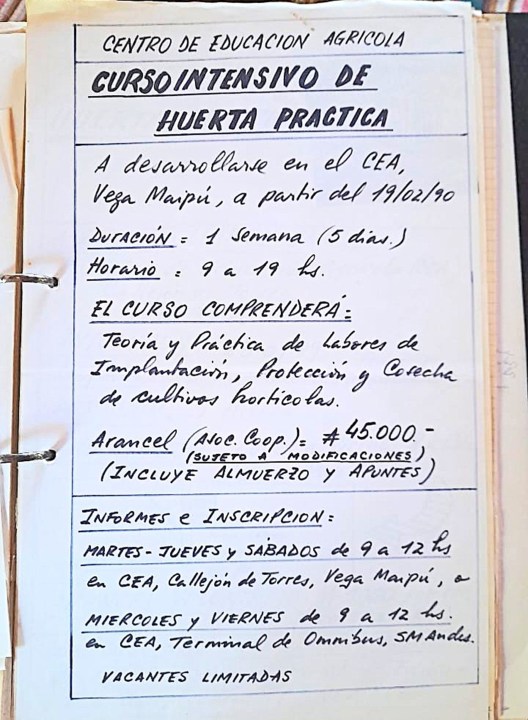 CENTRO DE EDUCACION AGRICOLA
CURSO INTENSIVO DE
HUERTA PRACTICA
A desarrollarse en el CEA,
Vega Maipú, a partir del 19/02/90
DURACIÓN = 1 Semana (5 dias.)
Horario : 9 a 19 hs.
EL CURSO COMPRENDERÁ:
Teoría y Práctica de Labores de
Implantación, Protección y Cosecha
de cultivos hortícolas.
Arancel (Asoc. Coop.)= ₳ 45.000.-
(SUJETO A MODIFICACIONES)
(INCLUYE ALMUERZO Y APUNTES)
INFORMES e INSCRIPCION:
MARTES - JUEVES y SÁBADOS de 9 a 12 hs
en CEA, Callejón de Torres, Vega Maipú, o
MIERCOLES y VIERNES de 9 a 12 hs.
en CEA, Terminal de Omnibus, SM Andes.
VACANTES LIMITADAS